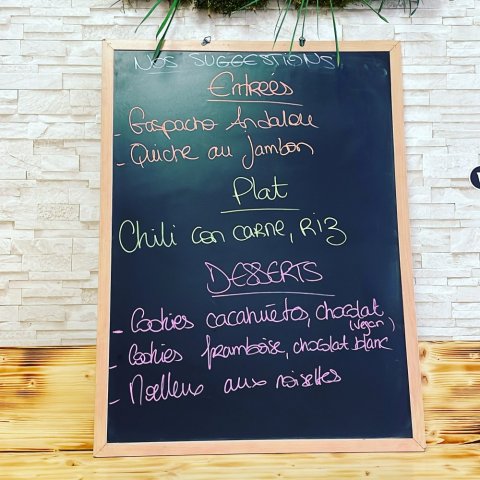 NOS SUGGESTIONS
Entrées
- Gaspacho Andalou
- Quiche au jambon
Plat
Chili con carne, Riz
DESSERTS
- Cookies cacahuètes, chocolat
(vegan)
- Cookies framboise, chocolat blanc
- Moelleux aux noisettes